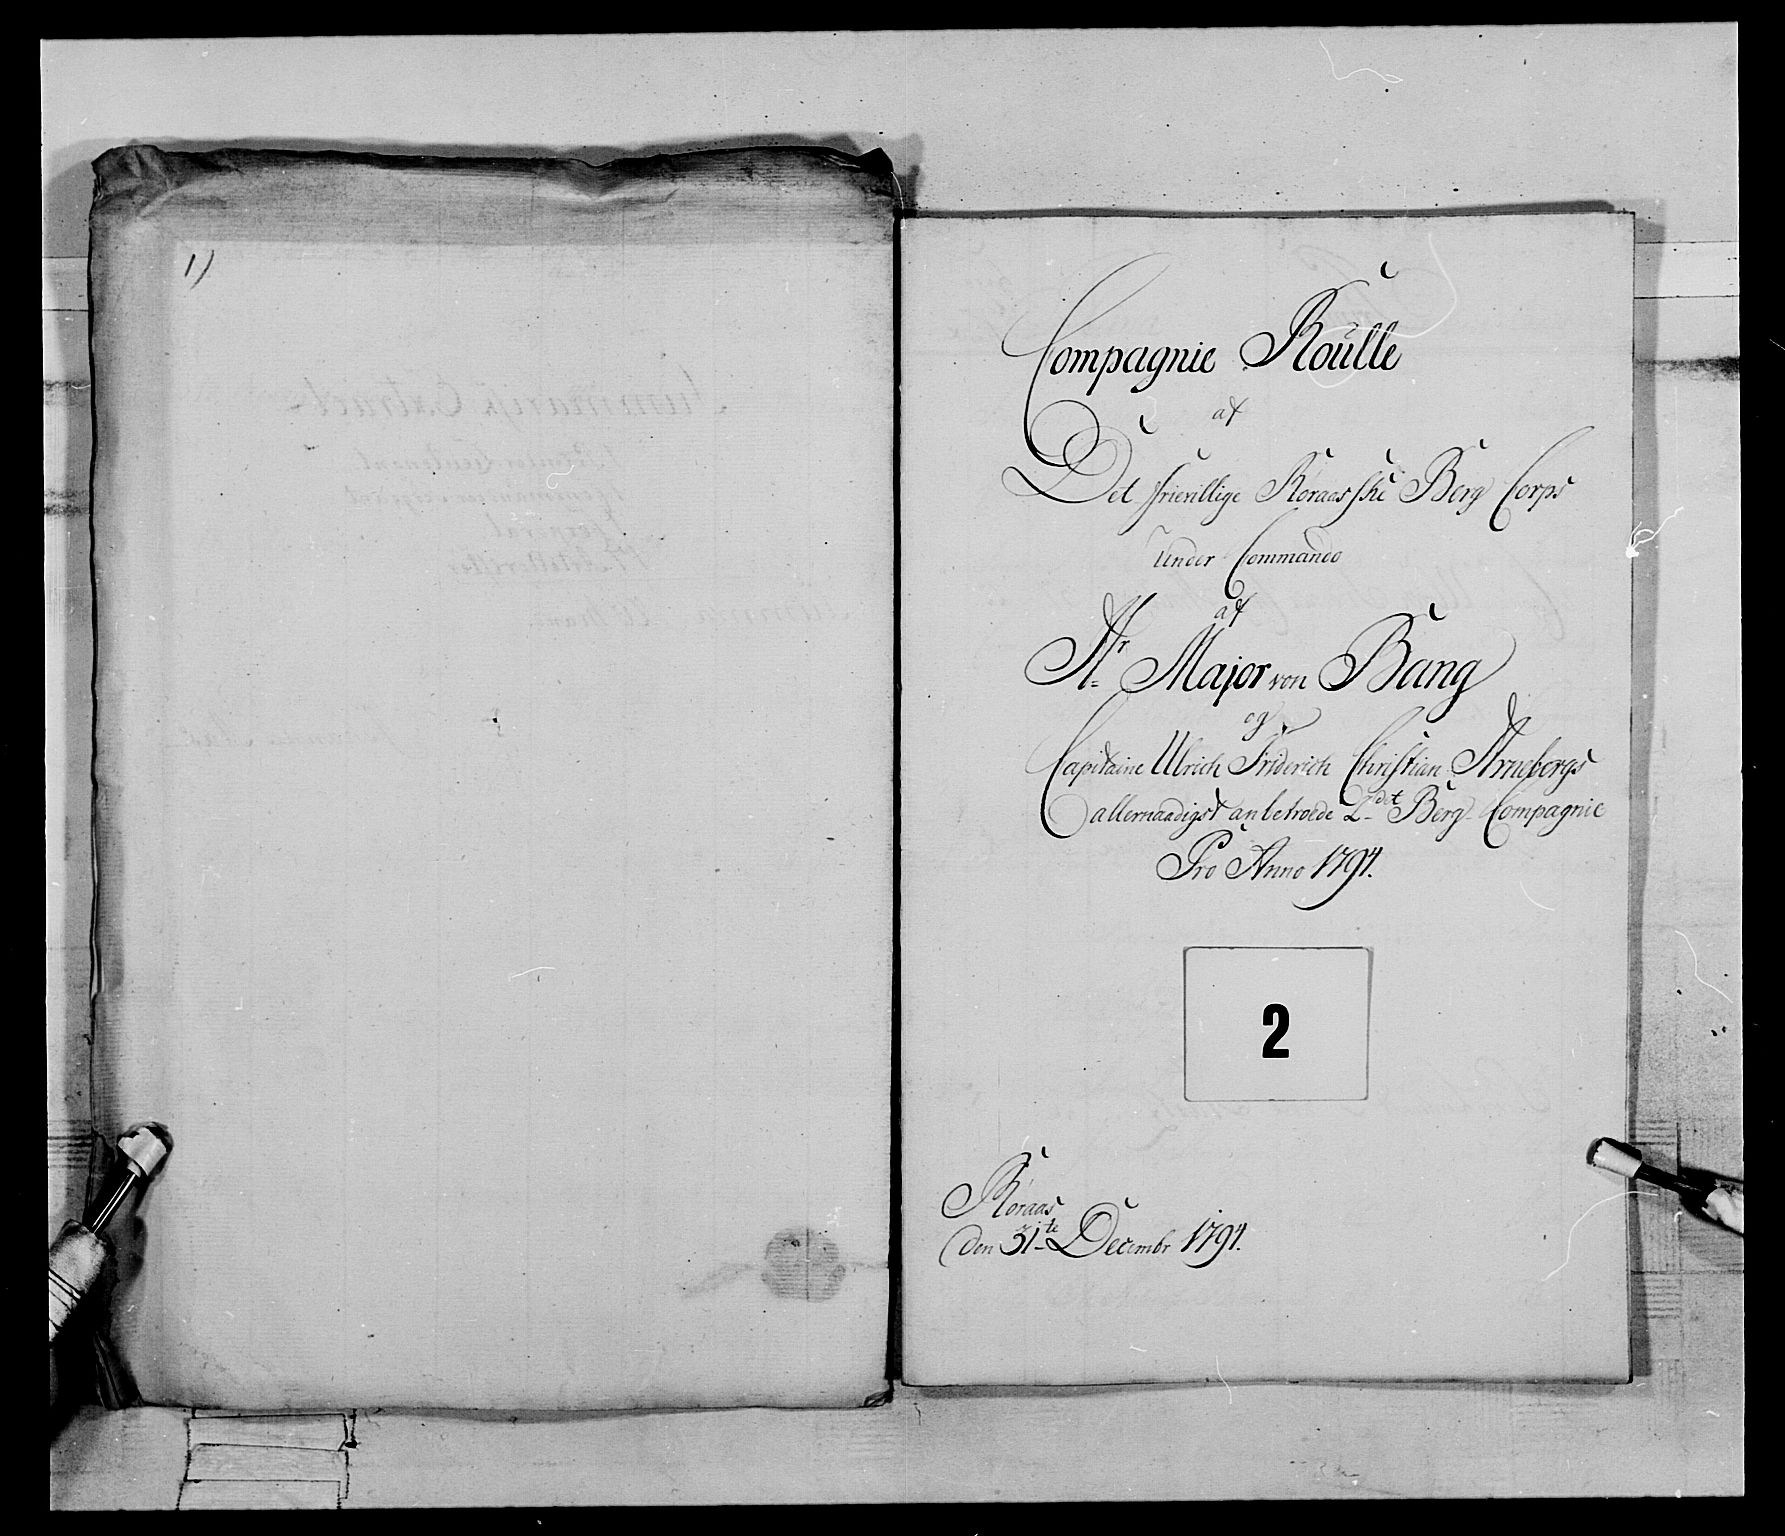 1)
Compagnie Roulle
af
Det frievillige Röraasske Berg Corps
Under Commando
af
Hr Major von Bang
og
Capitaine Ulrich Friderich Christian Arnebergs
allernaadigst anbetroede 2det Berg Compagnie
Pro Anno 1794.
2
Röraas
den 31te Decembr 1794.